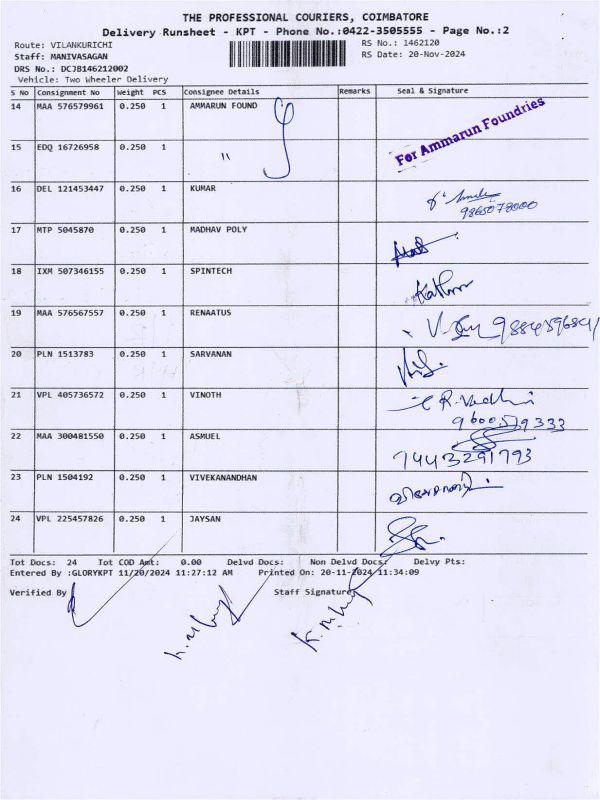 THE PROFESSIONAL COURIERS, COIMBATORE
Delivery Runsheet - KPT - Phone No.:0422-3505555 - Page No.:2
Route: VILANKURICHI
RS No.: 1462120
Staff: MANIVASAGAN
RS Date: 20-Nov-2024
DRS No.: DCJB146212002
Vehicle: Two Wheeler Delivery
S No Consignment No Weight PCS Consignee Details Remarks Seal & Signature
14 MAA 576579961 0.250 1 AMMARUN FOUND
For Ammarun Foundries
15 EDQ 16726958 0.250 1 "
16 DEL 121453447 0.250 1 KUMAR
9865078000
17 MTP 5045870 0.250 1 MADHAV POLY
18 IXM 507346155 0.250 1 SPINTECH
19 MAA 576567557 0.250 1 RENAATUS
20 PLN 1513783 0.250 1 SARVANAN
21 VPL 405736572 0.250 1 VINOTH
9600579333
22 MAA 300481550 0.250 1 ASMUEL
7443291793
23 PLN 1504192 0.250 1 VIVEKANANDHAN
24 VPL 225457826 0.250 1 JAYSAN
Tot Docs: 24 Tot COD Amt: 0.00 Delvd Docs: Non Delvd Docs: Delvy Pts:
Entered By :GLORYKPT 11/20/2024 11:27:12 AM Printed On: 20-11-2024 11:34:09
Verified By
Staff Signature